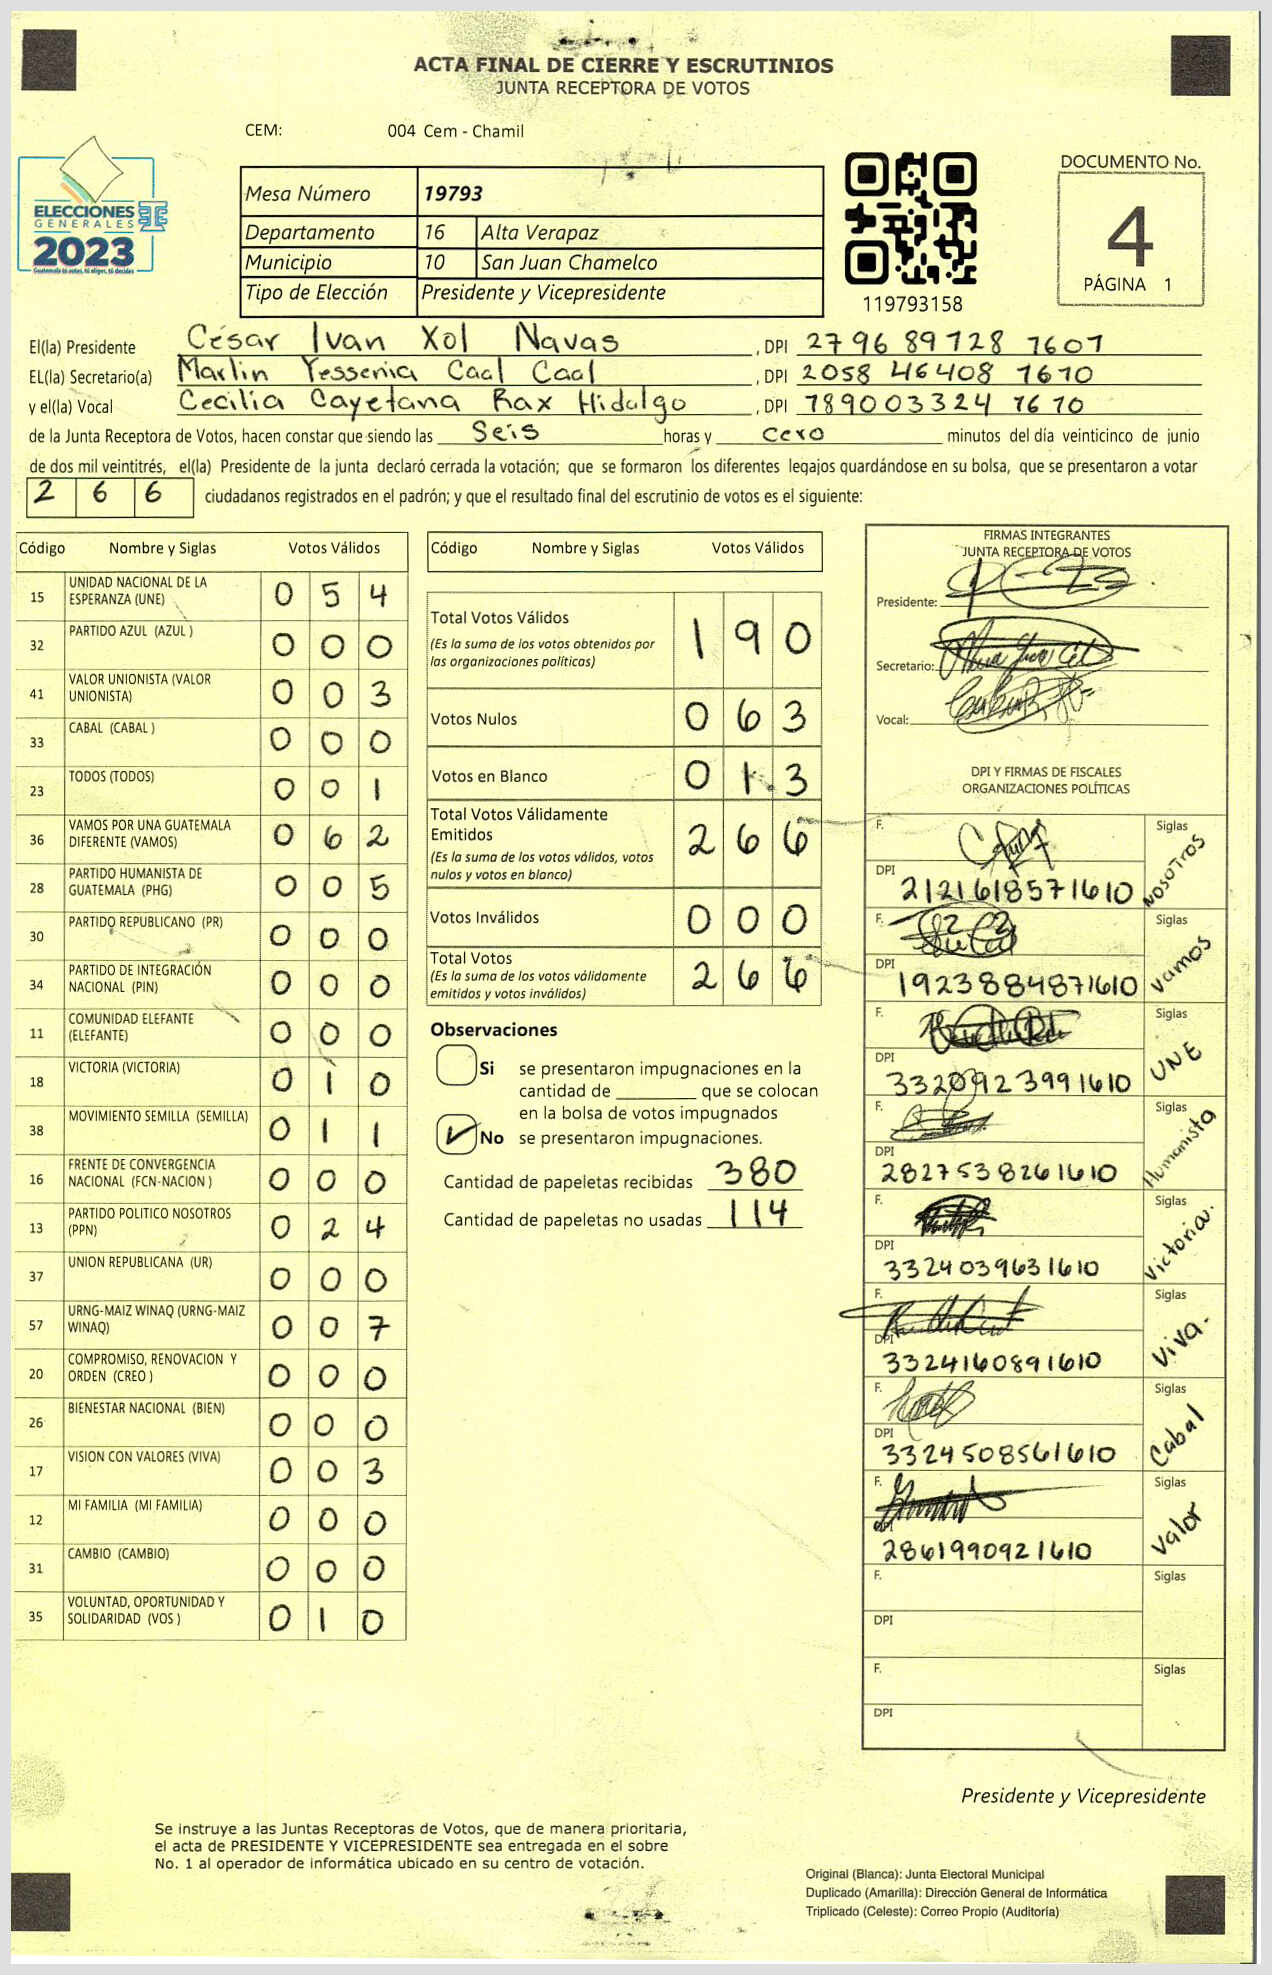 ACTA FINAL DE CIERRE Y ESCRUTINIOS
JUNTA RECEPTORA DE VOTOS
CEM: 004 Cem - Chamil
ELECCIONES
GENERALES
2023
Guatemala tú votas, tú eliges, tú decides
Mesa Número 19793
Departamento 16 Alta Verapaz
Municipio 10 San Juan Chamelco
Tipo de Elección Presidente y Vicepresidente
119793158
DOCUMENTO No.
4
PÁGINA 1
El(la) Presidente César Ivan Xol Navas , DPI 2796 89728 1601
EL(la) Secretario(a) Marlin Yessenia Caal Caal , DPI 2058 46408 1610
y el(la) Vocal Cecilia Cayetana Rax Hidalgo , DPI 789003324 1610
de la Junta Receptora de Votos, hacen constar que siendo las Seis horas y cero minutos del día veinticinco de junio
de dos mil veintitrés, el(la) Presidente de la junta declaró cerrada la votación; que se formaron los diferentes legajos guardándose en su bolsa, que se presentaron a votar
2 6 6 ciudadanos registrados en el padrón; y que el resultado final del escrutinio de votos es el siguiente:
Código Nombre y Siglas Votos Válidos
15 UNIDAD NACIONAL DE LA ESPERANZA (UNE) 0 5 4
32 PARTIDO AZUL (AZUL ) 0 0 0
41 VALOR UNIONISTA (VALOR UNIONISTA) 0 0 3
33 CABAL (CABAL ) 0 0 0
23 TODOS (TODOS) 0 0 1
36 VAMOS POR UNA GUATEMALA DIFERENTE (VAMOS) 0 6 2
28 PARTIDO HUMANISTA DE GUATEMALA (PHG) 0 0 5
30 PARTIDO REPUBLICANO (PR) 0 0 0
34 PARTIDO DE INTEGRACIÓN NACIONAL (PIN) 0 0 0
11 COMUNIDAD ELEFANTE (ELEFANTE) 0 0 0
18 VICTORIA (VICTORIA) 0 1 0
38 MOVIMIENTO SEMILLA (SEMILLA) 0 1 1
16 FRENTE DE CONVERGENCIA NACIONAL (FCN-NACION ) 0 0 0
13 PARTIDO POLITICO NOSOTROS (PPN) 0 2 4
37 UNION REPUBLICANA (UR) 0 0 0
57 URNG-MAIZ WINAQ (URNG-MAIZ WINAQ) 0 0 7
20 COMPROMISO, RENOVACION Y ORDEN (CREO ) 0 0 0
26 BIENESTAR NACIONAL (BIEN) 0 0 0
17 VISION CON VALORES (VIVA) 0 0 3
12 MI FAMILIA (MI FAMILIA) 0 0 0
31 CAMBIO (CAMBIO) 0 0 0
35 VOLUNTAD, OPORTUNIDAD Y SOLIDARIDAD (VOS ) 0 1 0
Código Nombre y Siglas Votos Válidos
Total Votos Válidos 1 9 0
(Es la suma de los votos obtenidos por
las organizaciones políticas)
Votos Nulos 0 6 3
Votos en Blanco 0 1 3
Total Votos Válidamente
Emitidos 2 6 6
(Es la suma de los votos válidos, votos
nulos y votos en blanco)
Votos Inválidos 0 0 0
Total Votos 2 6 6
(Es la suma de los votos válidamente
emitidos y votos inválidos)
Observaciones
Si se presentaron impugnaciones en la
cantidad de ________ que se colocan
en la bolsa de votos impugnados
No se presentaron impugnaciones.
Cantidad de papeletas recibidas 380
Cantidad de papeletas no usadas 114
FIRMAS INTEGRANTES
JUNTA RECEPTORA DE VOTOS
Presidente:
Secretario:
Vocal:
DPI Y FIRMAS DE FISCALES
ORGANIZACIONES POLÍTICAS
F. Siglas NOSOTROS
DPI 2121618571610
F. Siglas Vamos
DPI 1923884871610
F. Siglas UNE
DPI 3320923991610
F. Siglas Humanista
DPI 2827538261610
F. Siglas Victoria.
DPI 3324039631610
F. Siglas Viva.
DPI 3324160891610
F. Siglas Cabal
DPI 3324508561610
F. Siglas Valor
DPI 2861990921610
F. Siglas
DPI
F. Siglas
DPI
Presidente y Vicepresidente
Se instruye a las Juntas Receptoras de Votos, que de manera prioritaria,
el acta de PRESIDENTE Y VICEPRESIDENTE sea entregada en el sobre
No. 1 al operador de informática ubicado en su centro de votación.
Original (Blanca): Junta Electoral Municipal
Duplicado (Amarilla): Dirección General de Informática
Triplicado (Celeste): Correo Propio (Auditoría)